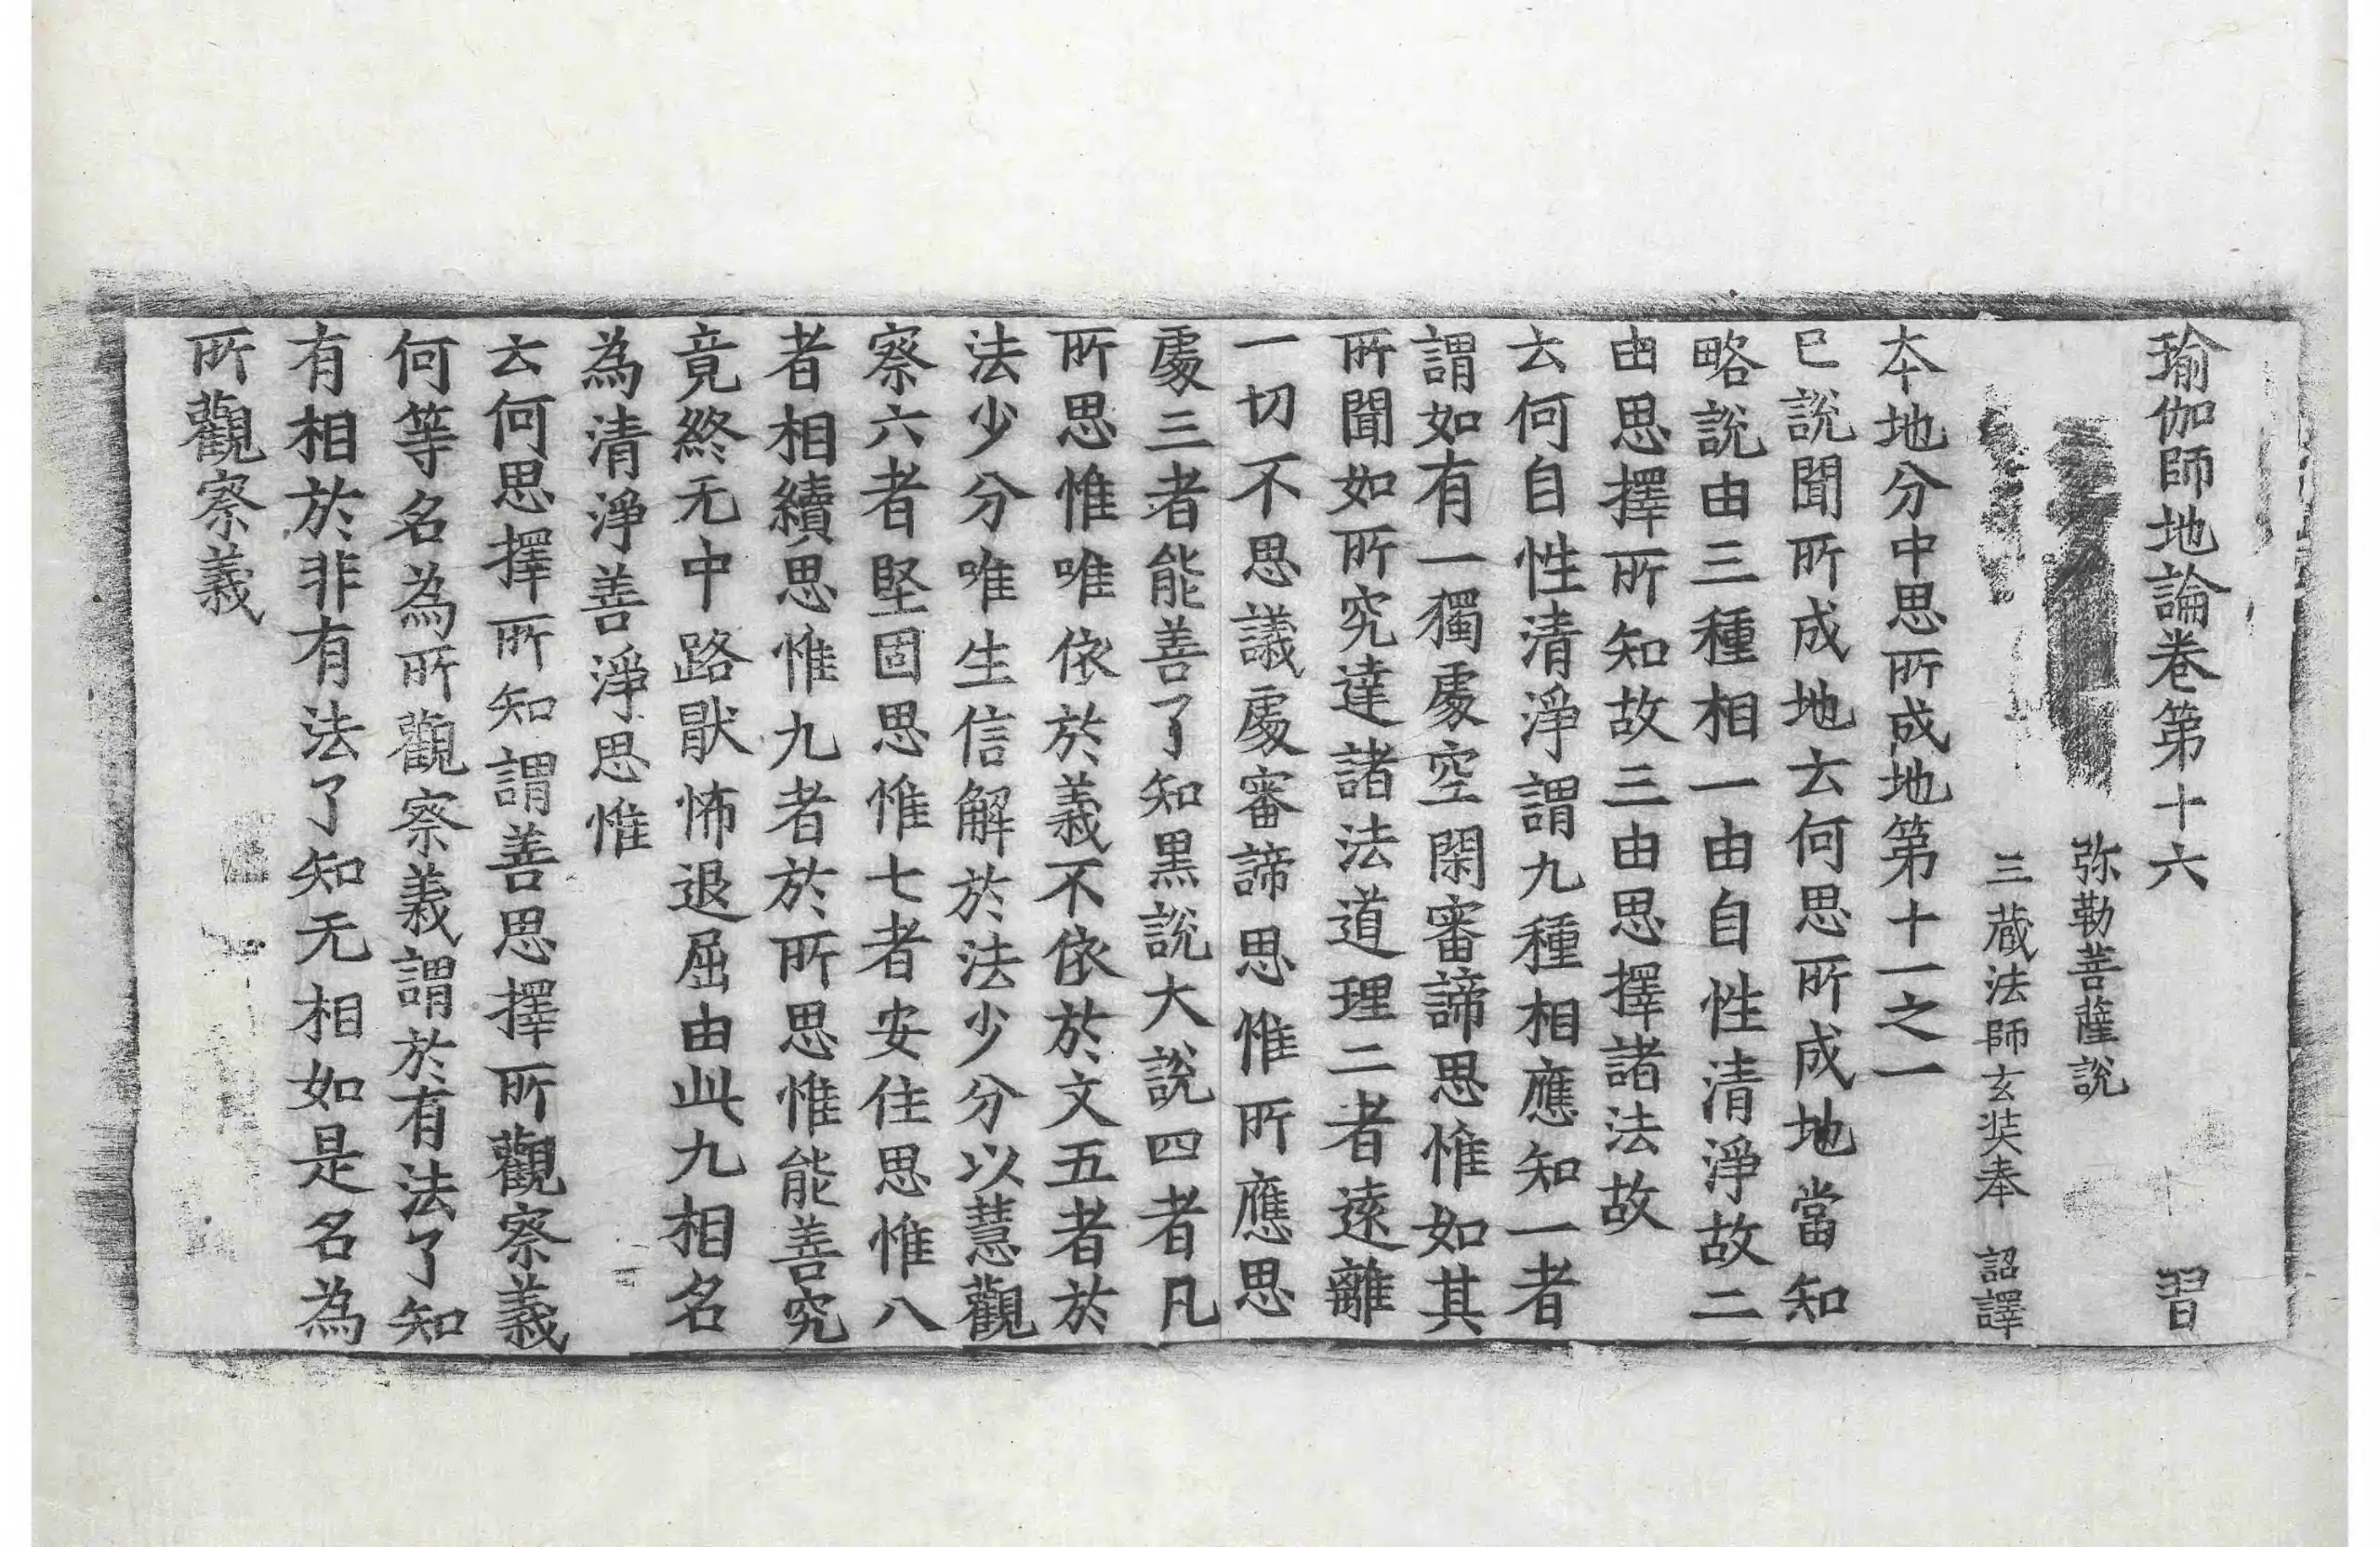 瑜伽師地論卷第十六 習
弥勒菩薩說
三蔵法師玄奘奉 詔譯
本地分中思所成地第十一之一
已說聞所成地云何思所成地當知
略說由三種相一由自性清淨故二
由思擇所知故三由思擇諸法故
云何自性清淨謂九種相應知一者
謂如有一獨處空閑審諦思惟如其
所聞如所究達諸法道理二者遠離
一切不思議處審諦思惟所應思
處三者能善了知黒說大說四者凡
所思惟唯依於義不依於文五者於
法少分唯生信解於法少分以慧觀
察六者堅固思惟七者安住思惟八
者相續思惟九者於所思惟能善究
竟終无中路猒怖退屈由此九相名
為清淨善淨思惟
云何思擇所知謂善思擇所觀察義
何等名為所觀察義謂於有法了知
有相於非有法了知无相如是名為
所觀察義